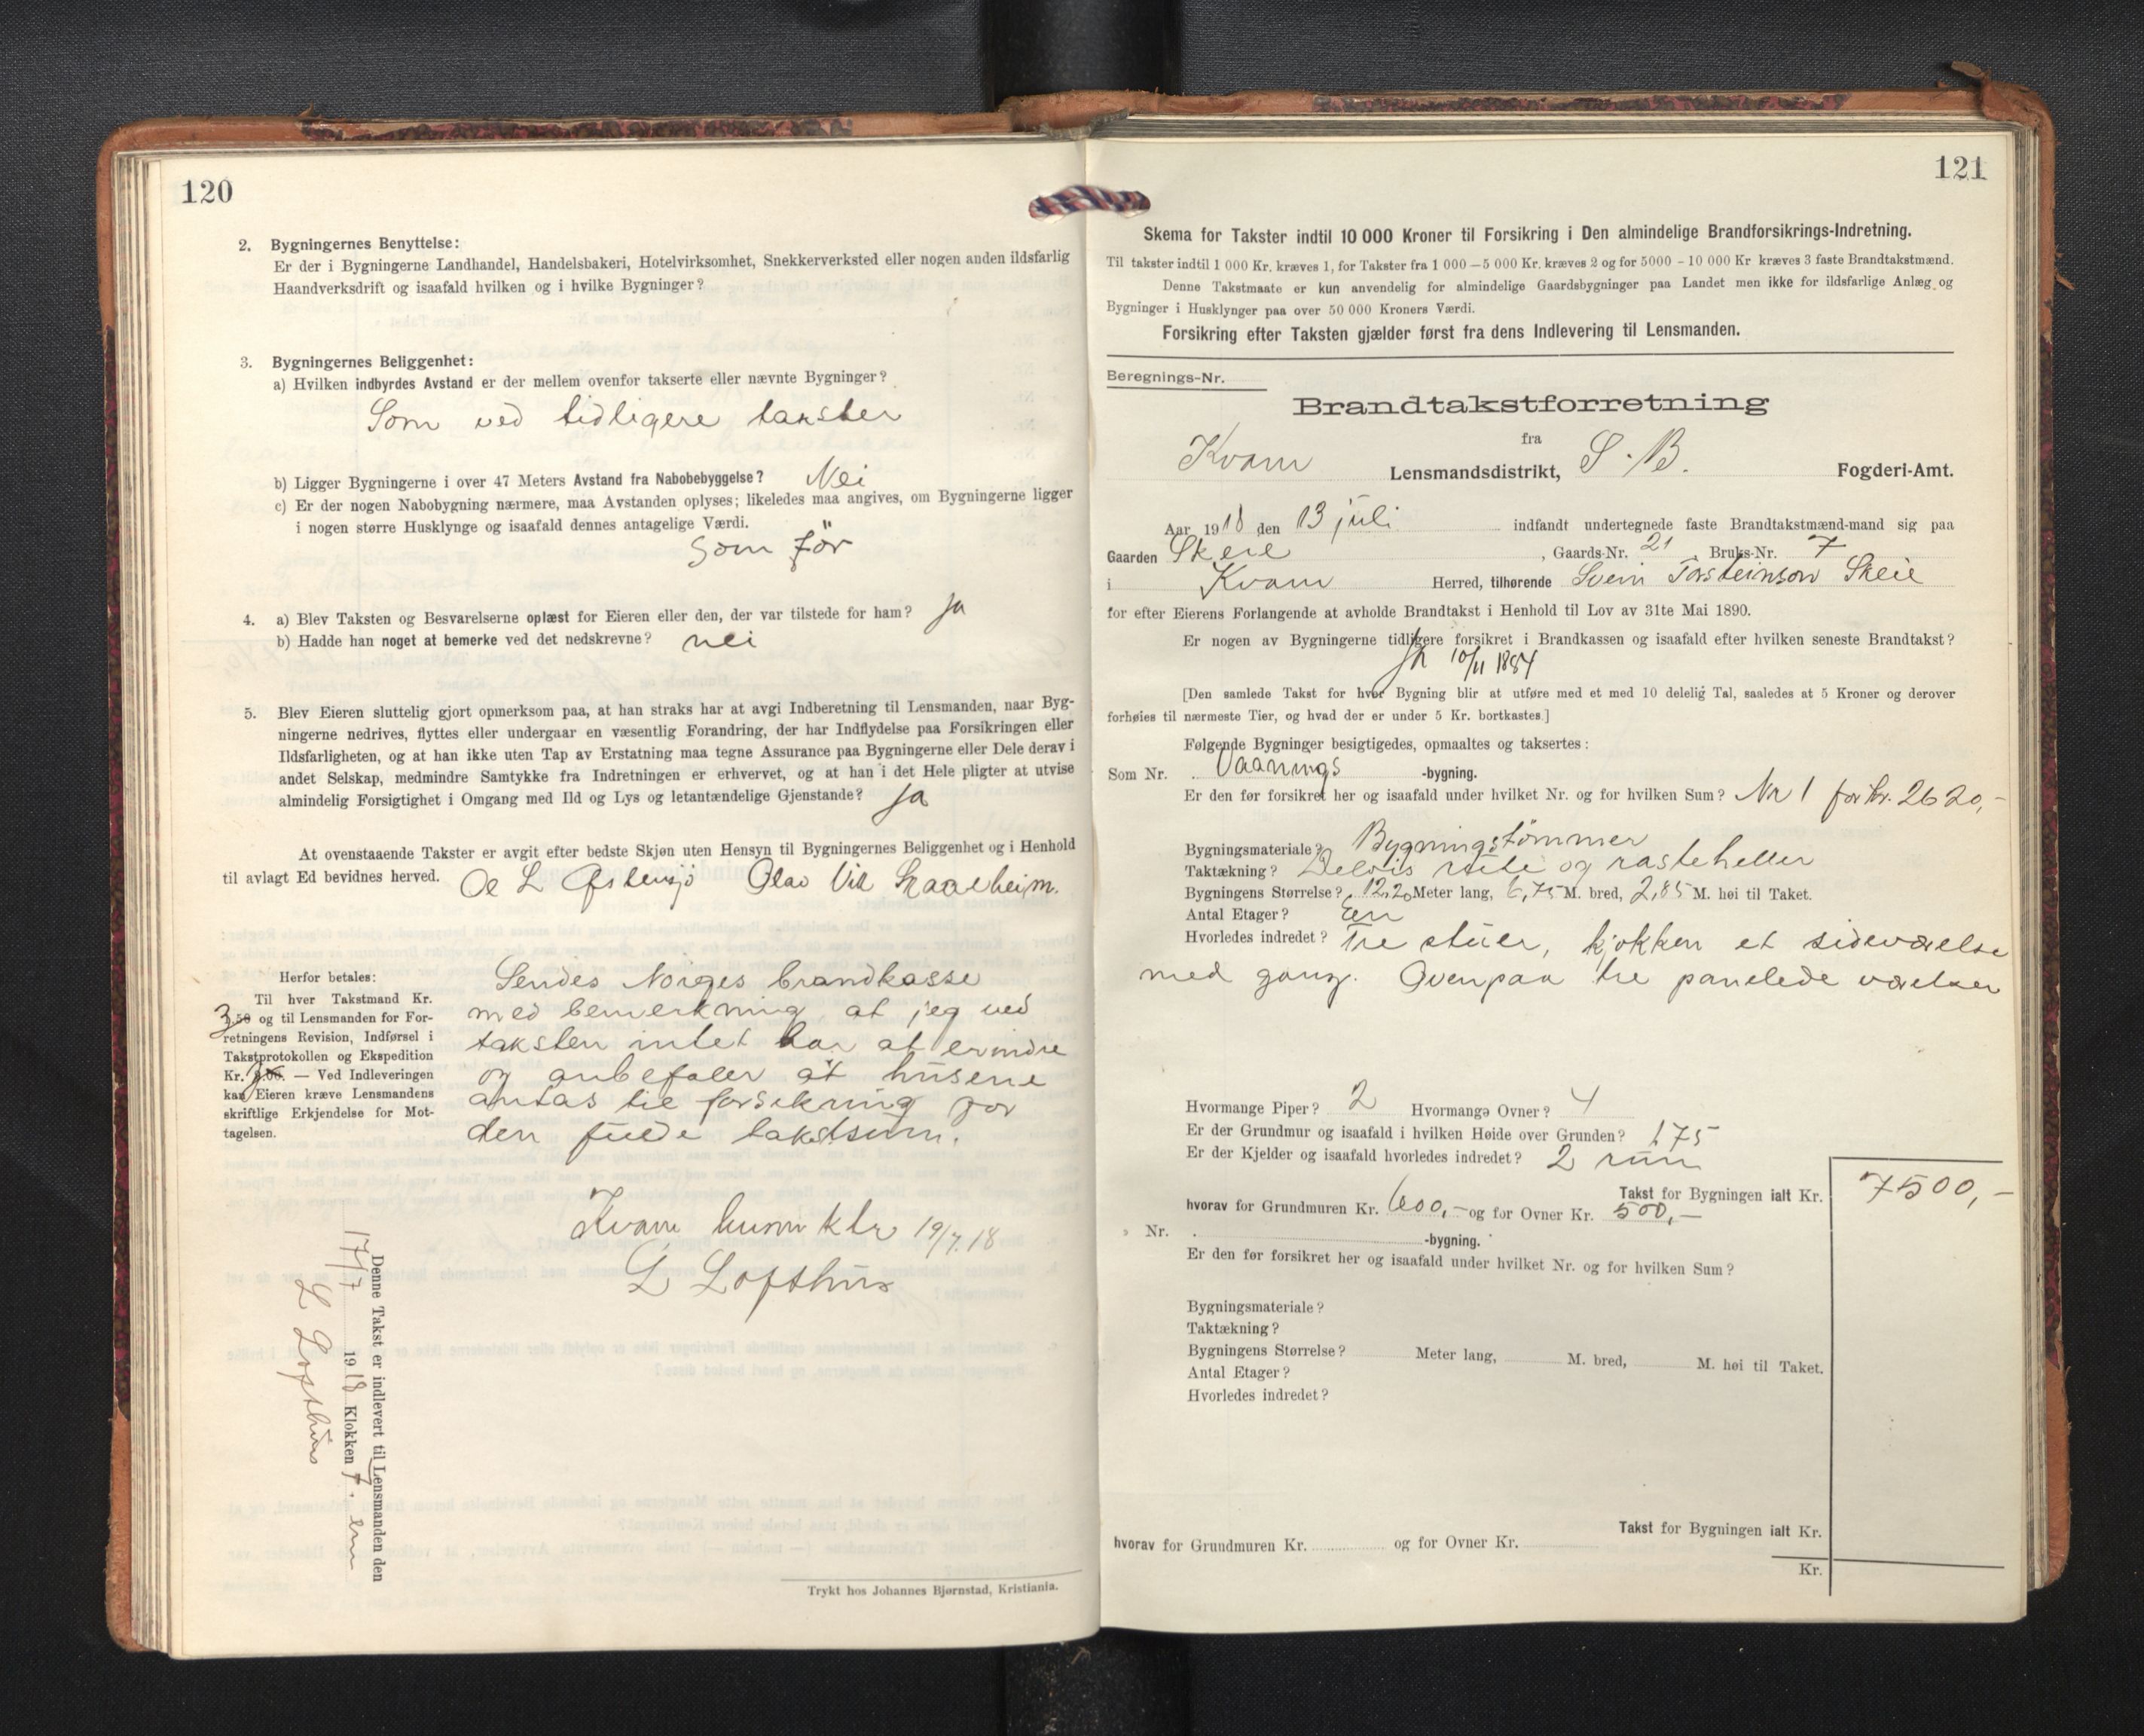 120
2. Bygningernes Benyttelse:
Er der i Bygningerne Landhandel, Handelsbakeri, Hotelvirksomhet, Snekkerverksted eller nogen anden ildsfarlig
Haandverksdrift og isaafald hvilken og i hvilke Bygninger?
3. Bygningernes Beliggenhet:
a) Hvilken indbyrdes Avstand er der mellem ovenfor takserte eller nævnte Bygninger?
Som ved tidligere takster
b) Ligger Bygningerne i over 47 Meters Avstand fra Nabobebyggelse? Nei
c) Er der nogen Nabobygning nærmere, maa Avstanden oplyses; likeledes maa angives, om Bygningerne ligger
i nogen større Husklynge og isaafald dennes antagelige Værdi.
Som før
4. a) Blev Taksten og Besvarelserne oplæst for Eieren eller den, der var tilstede for ham? ja
b) Hadde han noget at bemerke ved det nedskrevne? nei
5. Blev Eieren sluttelig gjort opmerksom paa, at han straks har at avgi Indberetning til Lensmanden, naar Byg-
ningerne nedrives, flyttes eller undergaar en væsentlig Forandring, der har Indflydelse paa Forsikringen eller
Ildsfarligheten, og at han ikke uten Tap av Erstatning maa tegne Assurance paa Bygningerne eller Dele derav i
andet Selskap, medmindre Samtykke fra Indretningen er erhvervet, og at han i det Hele pligter at utvise
almindelig Forsigtighet i Omgang med Ild og Lys og letantændelige Gjenstande? ja
At ovenstaaende Takster er avgit efter bedste Skjøn uten Hensyn til Bygningernes Beliggenhet og i Henhold
til avlagt Ed bevidnes herved. L Olav Vik
Herfor betales:
Til hver Takstmand Kr.
3.50 og til Lensmanden for For-
retningens Revision, Indførsel i
Takstprotokollen og Ekspedition
Kr. 3 — Ved Indleveringen
kan Eieren kræve Lensmandens
skriftlige Erkjendelse for Mot-
tagelsen.
Sendes Norges brandkasse
med bemerkning, at jeg ved
taksten intet har at erindre
og anbefaler at husene
antas til forsikring for
den fulde takstsum.
Kvam lensm ktr 19/7.18
L Lofthus
Denne Takst er indlevert til Lensmanden den
17/7 1918 Klokken 7. em
L Lofthus
Trykt hos Johannes Bjørnstad, Kristiania.
121
Skema for Takster indtil 10 000 Kroner til Forsikring i Den almindelige Brandforsikrings-Indretning.
Til takster indtil 1 000 Kr. kræves 1, for Takster fra 1 000 — 5 000 Kr. kræves 2 og for 5000 - 10 000 Kr kræves 3 faste Brandtakstmænd.
Denne Takstmaate er kun anvendelig for almindelige Gaardsbygninger paa Landet men ikke for ildsfarlige Anlæg og
Bygninger i Husklynger paa over 50 000 Kroners Værdi.
Forsikring efter Taksten gjælder først fra dens Indlevering til Lensmanden.
Beregnings-Nr.
Brandtakstforretning
fra
Kvam Lensmandsdistrikt, S. B. Fogderi-Amt.
Aar 1918 den 13 juli indfandt undertegnede faste Brandtakstmænd-mand sig paa
Gaarden Skeie, Gaards-Nr. 21, Bruks-Nr. 7
i Kvam Herred, tilhørende Svein Torsteinson Skeie
for efter Eierens Forlangende at avholde Brandtakst i Henhold til Lov av 31te Mai 1890.
Er nogen av Bygningerne tidligere forsikret i Brandkassen og isaafald efter hvilken seneste Brandtakst?
Ja 10/11 1884
[Den samlede Takst for hver Bygning blir at utføre med et med 10 delelig Tal, saaledes at 5 Kroner og derover
forhøies til nærmeste Tier, og hvad der er under 5 Kr. bortkastes.]
Følgende Bygninger besigtigedes, opmaaltes og taksertes:
Som Nr. Vaanings -bygning.
Er den før forsikret her og isaafald under hvilket Nr. og for hvilken Sum? Nr 1 for kr. 2620,-
Bygningsmateriale? Bygningstømmer
Taktækning? Delvis og rasteheller
Bygningens Størrelse? 12,20 Meter lang, 6,75 M. bred, 2,85 M. høi til Taket.
Antal Etager? En
Hvorledes indredet? Tre stuer, kjøkken et sideværelse
med gang. Ovenpaa tre panelede værelser
Hvormange Piper? 2 Hvormange Ovner? 4
Er der Grundmur og isaafald i hvilken Høide over Grunden? 1,75
Er der Kjelder og isaafald hvorledes indredet? 2 rum
Takst for Bygningen ialt Kr. 7500,-
hvorav for Grundmuren Kr. 600,- og for Ovner Kr. 500,-
» Nr. -bygning.
Er den før forsikret her og isaafald under hvilket Nr. og for hvilken Sum?
Bygningsmateriale?
Taktækning?
Bygningens Størrelse? Meter lang, M. bred, M. høi til Taket.
Antal Etager?
Hvorledes indredet?
Takst for Bygningen ialt Kr.
hvorav for Grundmuren Kr. og for Ovner Kr.
Kr.